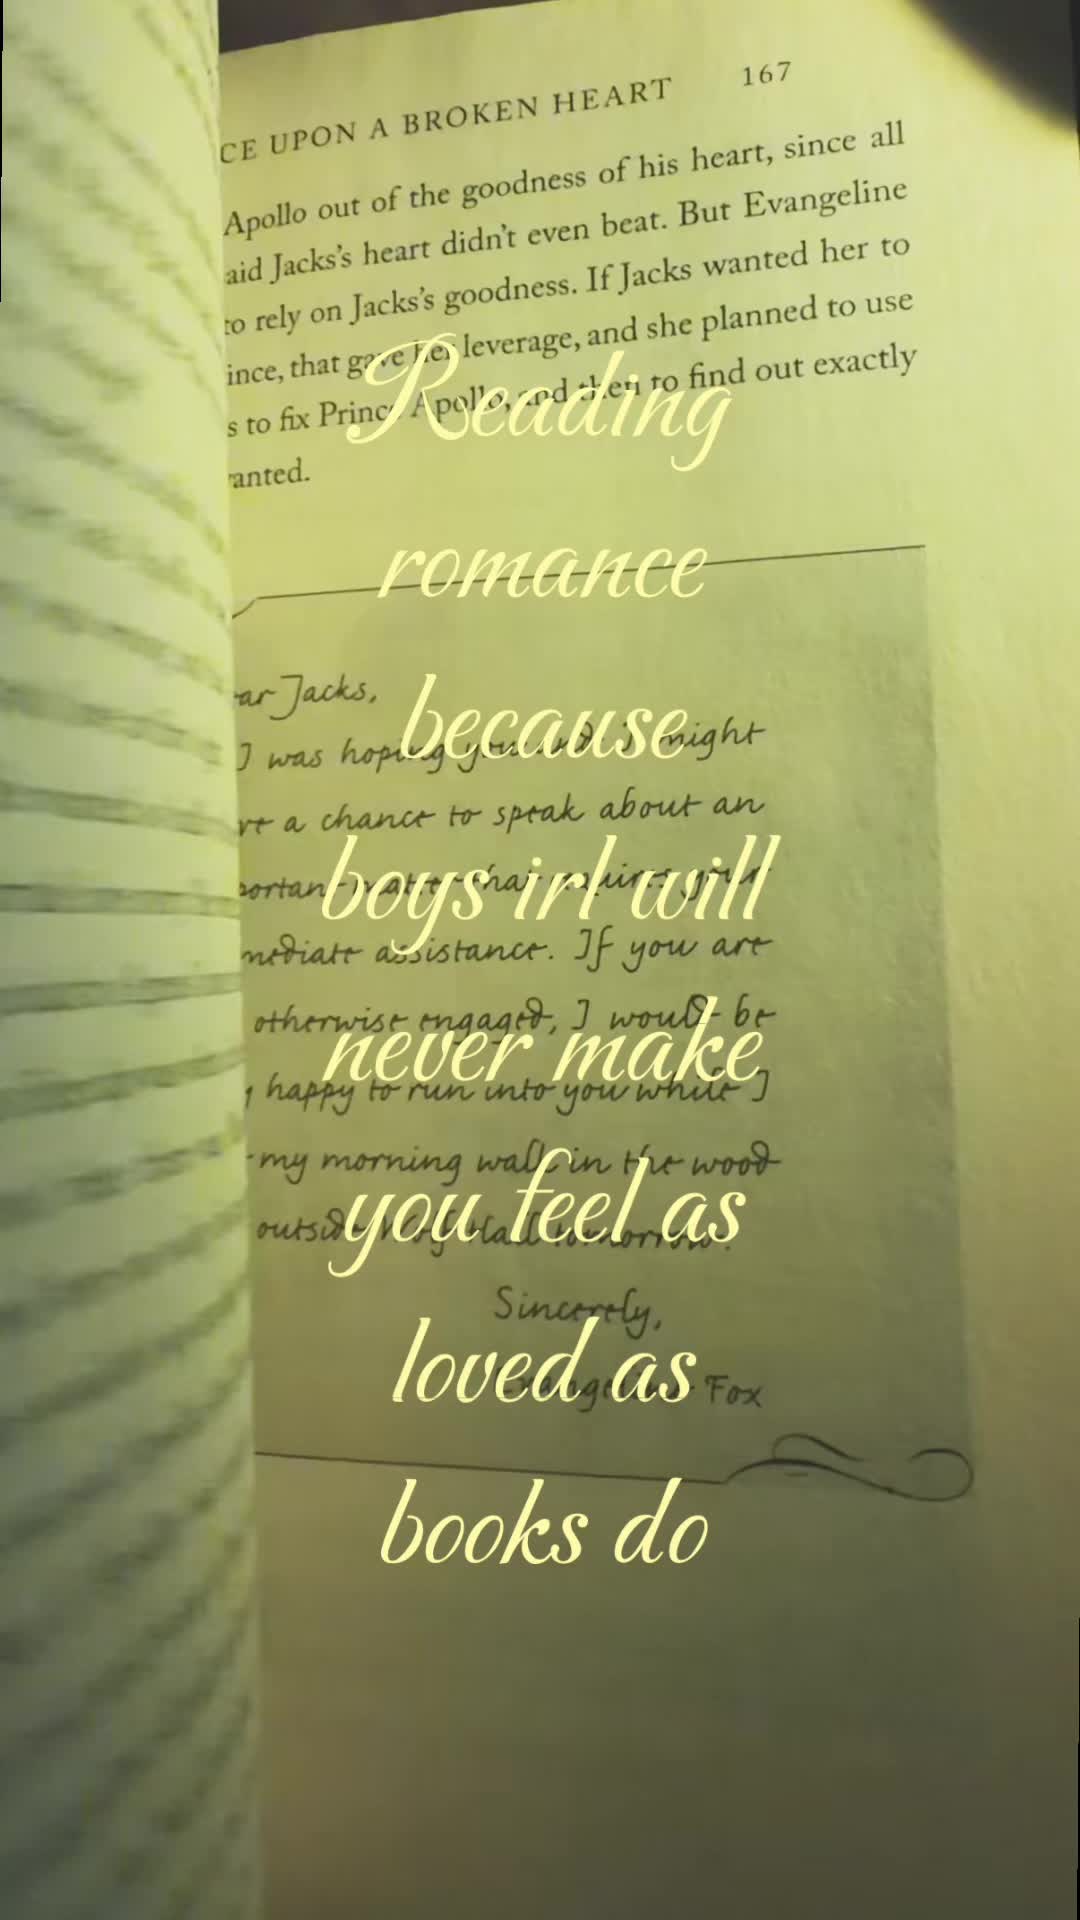 CE UPON A BROKEN HEART 167
Apollo out of the goodness of his heart, since all
aid Jacks's heart didn't even beat. But Evangeline
to rely on Jacks's goodness. If Jacks wanted her to
ince, that gave her leverage, and she planned to use
s to fix Prince Apollo, and then to find out exactly
anted.
Reading
romance
because
boys irl will
never make
you feel as
loved as
books do
ar Jacks,
I was hoping you and I might
ve a chance to speak about an
portant matter that requires your
mediate assistance. If you are
otherwise engaged, I would be
happy to run into you while I
my morning walk in the wood
outside Wolf Hall tomorrow.
Sincerely,
Evangeline Fox